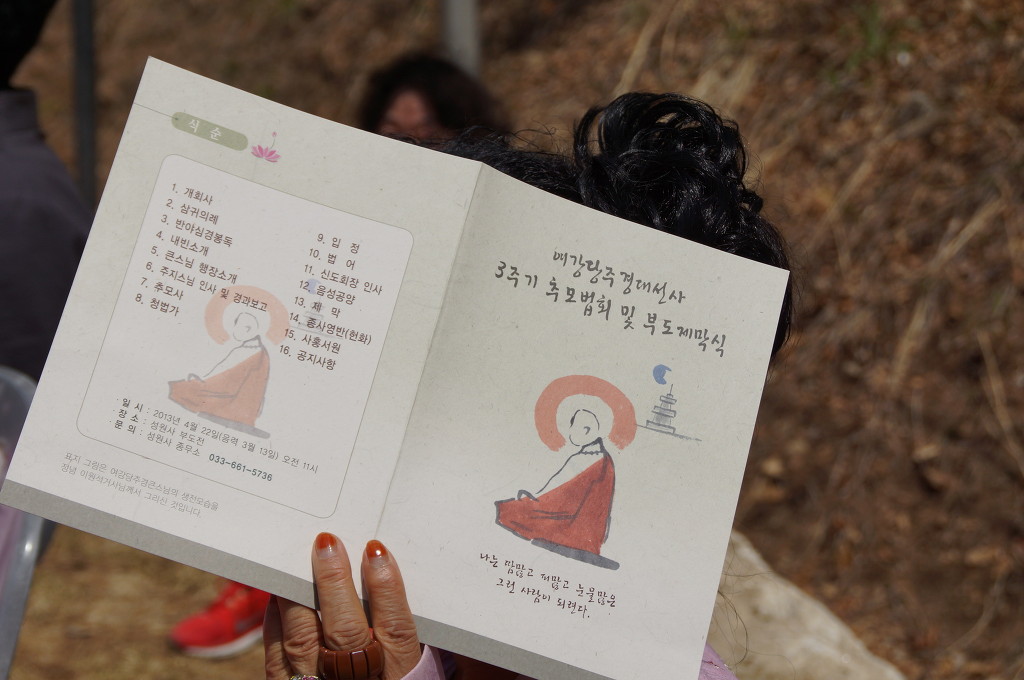 식 순
1. 개회사
2. 삼귀의례
3. 반야심경봉독
4. 내빈소개
5. 큰스님 행장소개
6. 주지스님 인사 및 경과보고
7. 추모사
8. 청법가
9. 입 정
10. 법 어
11. 신도회장 인사
12. 음성공양
13. 제 막
14. 종사영반(헌화)
15. 사홍서원
16. 공지사항
· 일 시 : 2013년 4월 22일(음력 3월 13일) 오전 11시
· 장 소 : 성원사 부도전
· 문 의 : 성원사 종무소 033-661-5736
표지 그림은 여강당주경큰스님의 생전모습을
이원석거사님께서 그리신 것입니다.
여강당주경대선사
3주기 추모법회 및 부도제막식
나는 땀많고 피많고 눈물많은
그런 사람이 되련다.